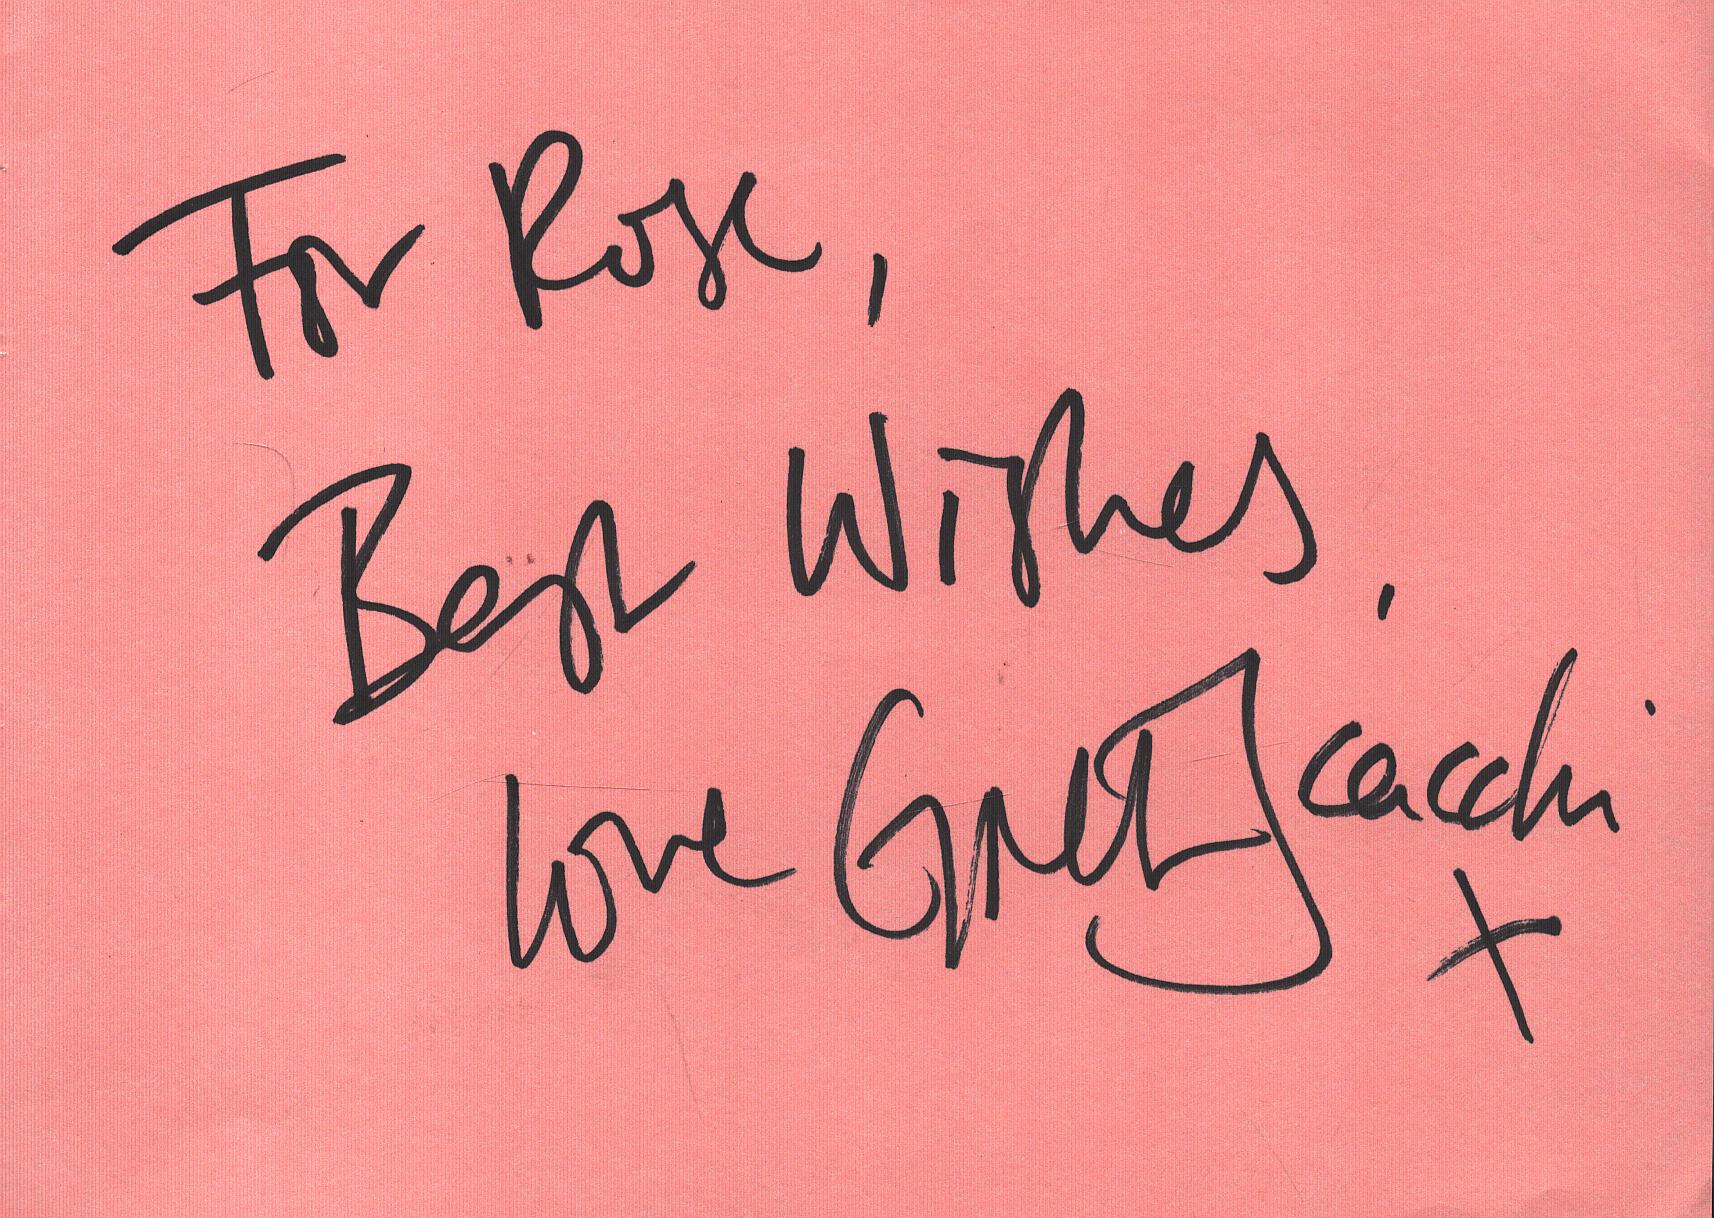 For Rose,
Best Wishes,
love Greta Scacchi
x